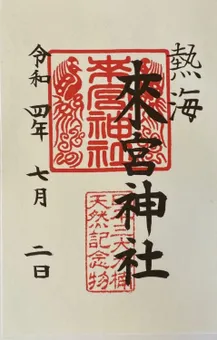 熱海
來宮神社
令和四年七月二日
来宮神社
天然記念物